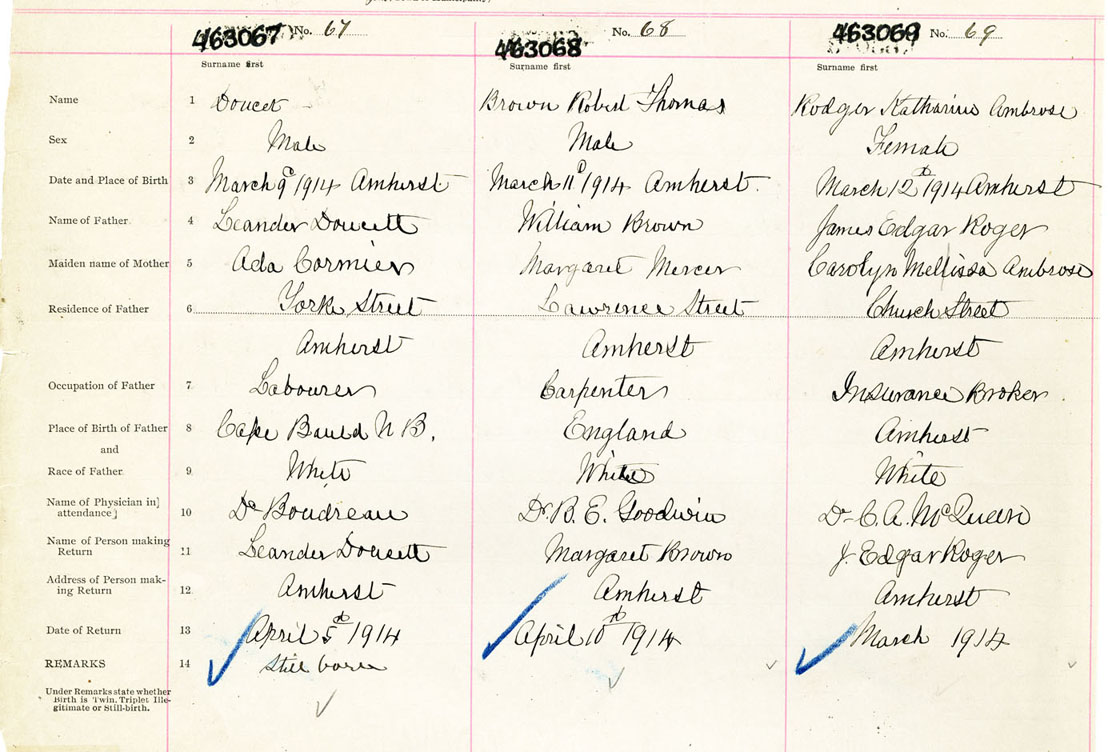 463067 No. 67 463068 No. 68 463069 No. 69
Surname first Surname first Surname first
Name 1 Doucet Brown Robert Thomas Rodger Katharine Ambrose
Sex 2 Male Male Female
Date and Place of Birth 3 March 9th 1914 Amherst March 11th 1914 Amherst. March 12th 1914 Amherst
Name of Father 4 Leander Doucett William Brown James Edgar Roger
Maiden name of Mother 5 Ada Cormier Margaret Mercer Carolyn Mellissa Ambrose
Residence of Father 6 York Street Lawrence Street Church Street
Amherst Amherst Amherst
Occupation of Father 7 Labourer Carpenter Insurance Broker.
Place of Birth of Father 8 Cape Bauld N B. England Amherst
and
Race of Father 9 White White White
Name of Physician in}
attendance} 10 Dr Boudreau Dr. B. E. Goodwin Dr C. A. McQueen
Name of Person making
Return 11 Leander Doucett Margaret Brown J. Edgar Roger
Address of Person mak-
ing Return 12 Amherst Amherst Amherst
Date of Return 13 April 5th 1914 April 10th 1914 March 1914
REMARKS 14 Still born
Under Remarks state whether
Birth is Twin, Triplet Ille-
gitimate or Still-birth.